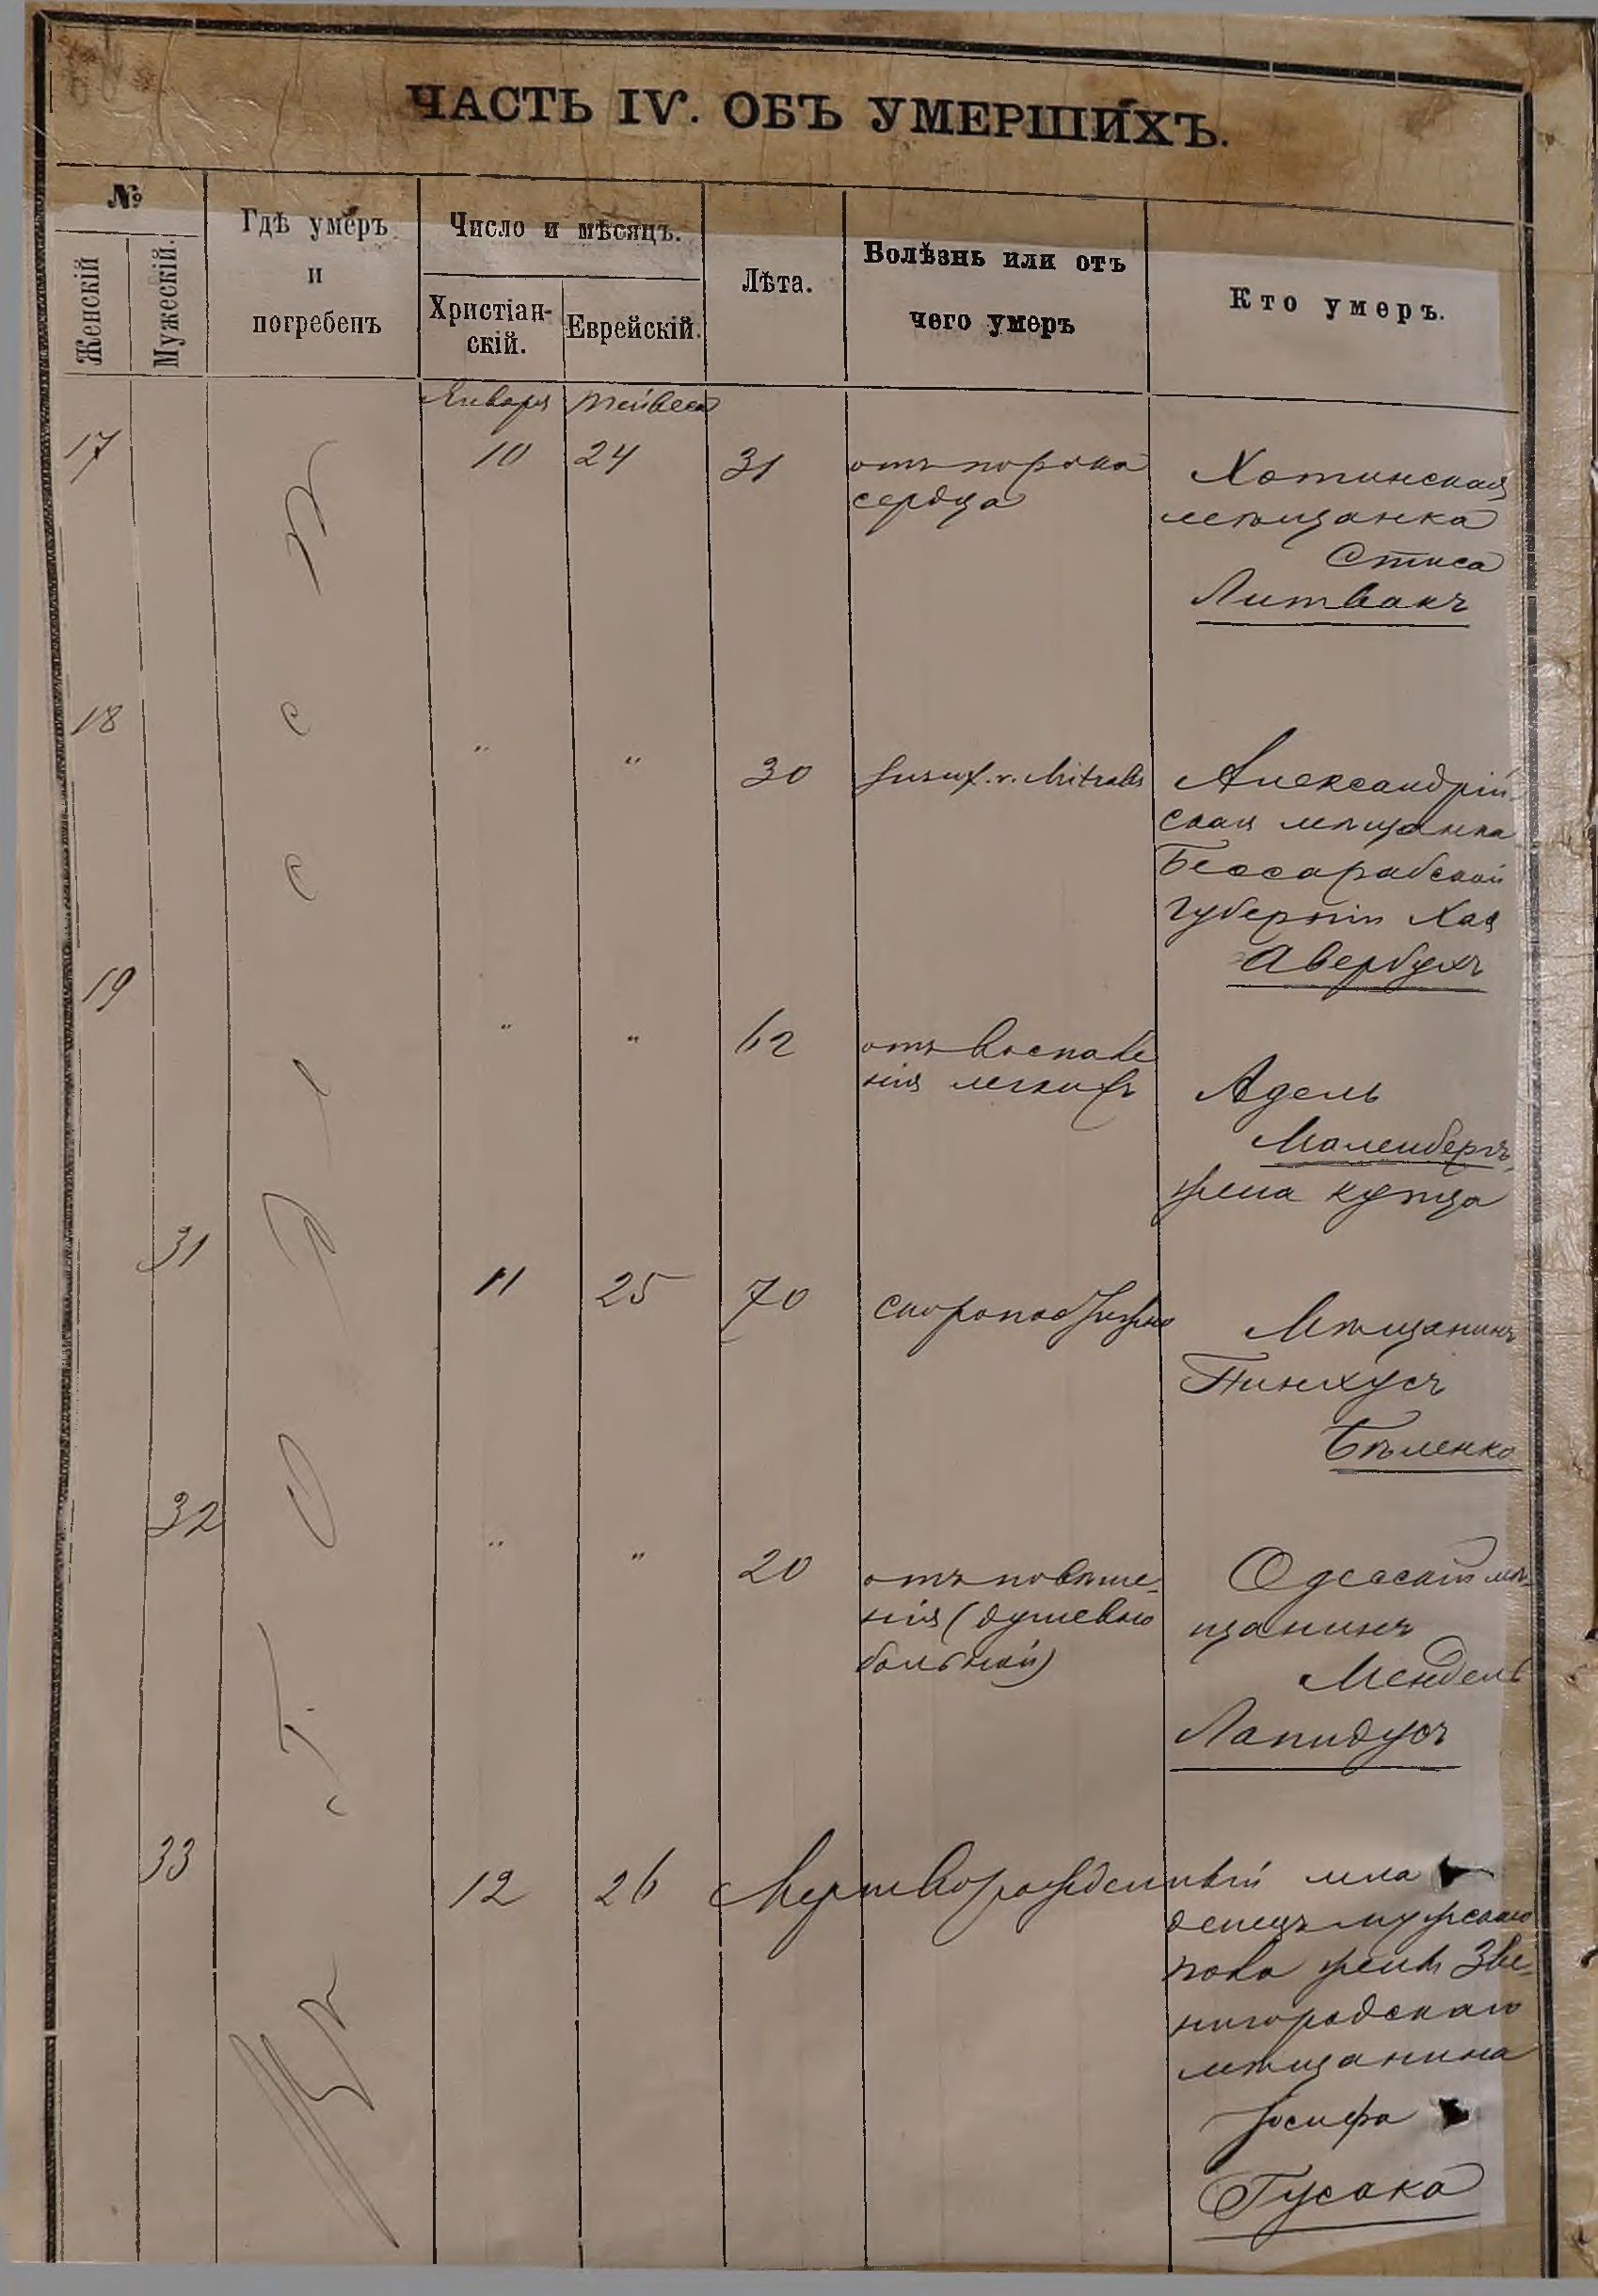 ЧАСТЬ IV. ОБЪ УМЕРШИХЪ.
№
Женскій
Мужескій.
Гдѣ умеръ
и
погребенъ
Число и мѣсяцъ.
Христіан-
скій.
Еврейскій.
Лѣта.
Болѣзнь или отъ
чего умеръ
Кто умеръ.
Января
Тейвеса
17
10
24
31
отъ порока
сердца
Хотинская
мѣщанка
Литвакъ
18
"
"
30
Insuf. v. Mitralis
Александрій-
ская мѣщанка
Бессарабской
губерніи Хая
Авербухъ
19
"
"
62
отъ воспале
нія легкихъ
Адель
Маленбергъ,
жена купца
31
11
25
70
скоропостижно
Мѣщанинъ
Пинхусъ
Бѣленко
32
"
"
20
отъ повѣше-
нія (душевно
больной)
Одесскій мѣ-
щанинъ
Мендель
Лапидусъ
33
12
26
Мертворожденный мла
денецъ мужского
пола жены Зве-
нигородскаго
мѣщанина
Іосифа
Гусака